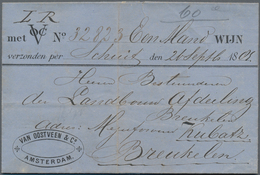 I R 60 c
met VOC No 32823 Een Mand WIJN
verzonden per Schuit den 26 Septb 1861.
Heeren Bestuurderen
der Landbouw Afdeeling
Breukelen
Adres Mynheeren
Breukelen
VAN OOSTVEEN & Co.
AMSTERDAM.